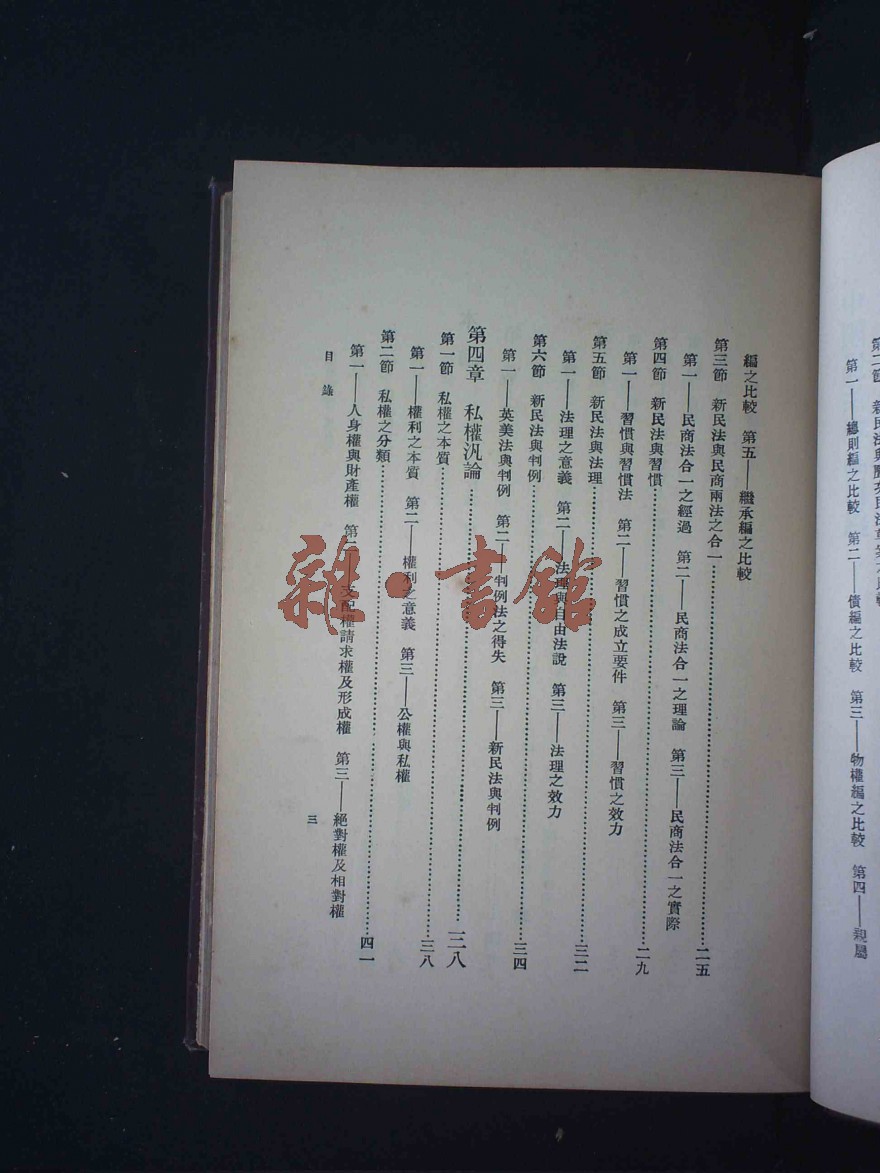 第一——總則編之比較　第二——債編之比較　第三——物權編之比較　第四——親屬
編之比較　第五——繼承編之比較
第三節　新民法與民商兩法之合一…………二五
第一——民商法合一之經過　第二——民商法合一之理論　第三——民商法合一之實際
第四節　新民法與習慣…………二九
第一——習慣與習慣法　第二——習慣之成立要件　第三——習慣之效力
第五節　新民法與法理…………三二
第一——法理之意義　第二——法理與自由法說　第三——法理之效力
第六節　新民法與判例…………三四
第一——英美法與判例　第二——判例法之得失　第三——新民法與判例
第四章　私權汎論…………三八
第一節　私權之本質…………三八
第一——權利之本質　第二——權利之意義　第三——公權與私權
第二節　私權之分類…………四一
第一——人身權與財產權　第二——支配權請求權及形成權　第三——絕對權及相對權
目錄
三
雜·書館